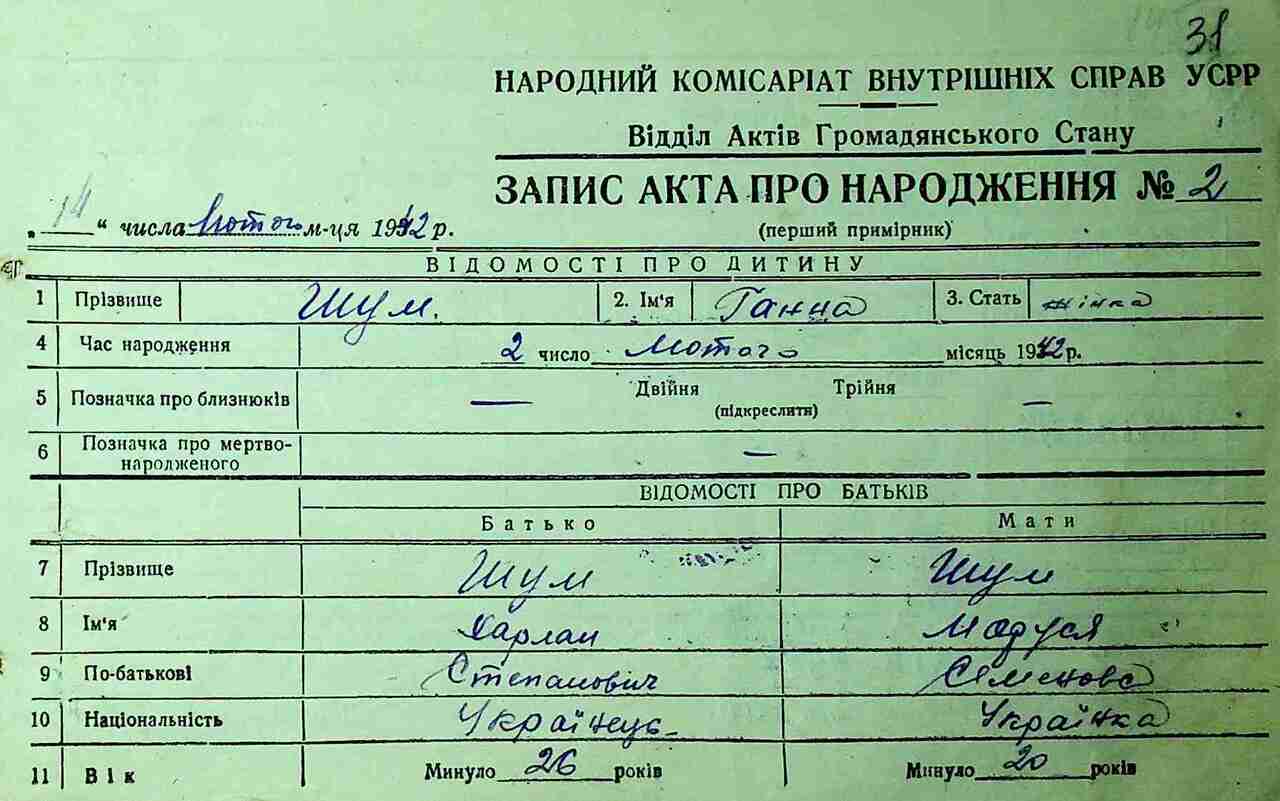 31
НАРОДНИЙ КОМІСАРІАТ ВНУТРІШНІХ СПРАВ УСРР
Відділ Актів Громадянського Стану
ЗАПИС АКТА ПРО НАРОДЖЕННЯ № 2
„14“ числа Лютого м-ця 1942 р.
(перший примірник)
ВІДОМОСТІ ПРО ДИТИНУ
1 Прізвище Шум. 2. Ім'я Ганна 3. Стать жінка
4 Час народження 2 число Лютого місяць 1942 р.
5 Позначка про близнюків — Двійня Трійня —
(підкреслити)
6 Позначка про мертво-
народженого —
ВІДОМОСТІ ПРО БАТЬКІВ
Батько Мати
7 Прізвище Шум Шум
8 Ім'я Харлан Маруся
9 По-батькові Степанович Семенова
10 Національність Українець Українка
11 Вік Минуло 26 років Минуло 20 років